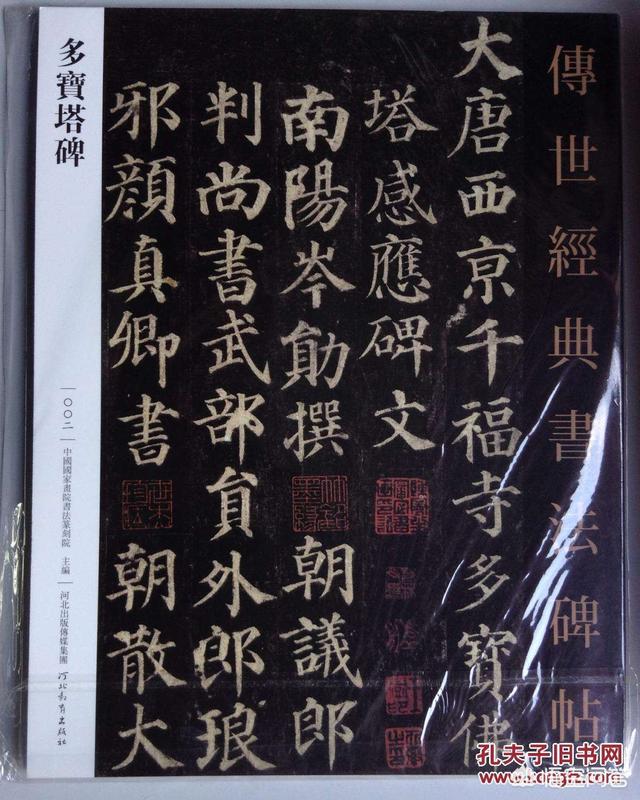 傳世經典書法碑帖
大唐西京千福寺多寶佛
塔感應碑文
南陽岑勛撰 朝議郎
判尚書武部員外郎琅
邪顏真卿書 朝散大
多寶塔碑
一〇〇二一
中國國家畫院書法篆刻院 主編
河北出版傳媒集團
河北教育出版社
孔夫子旧书网
悟空问答